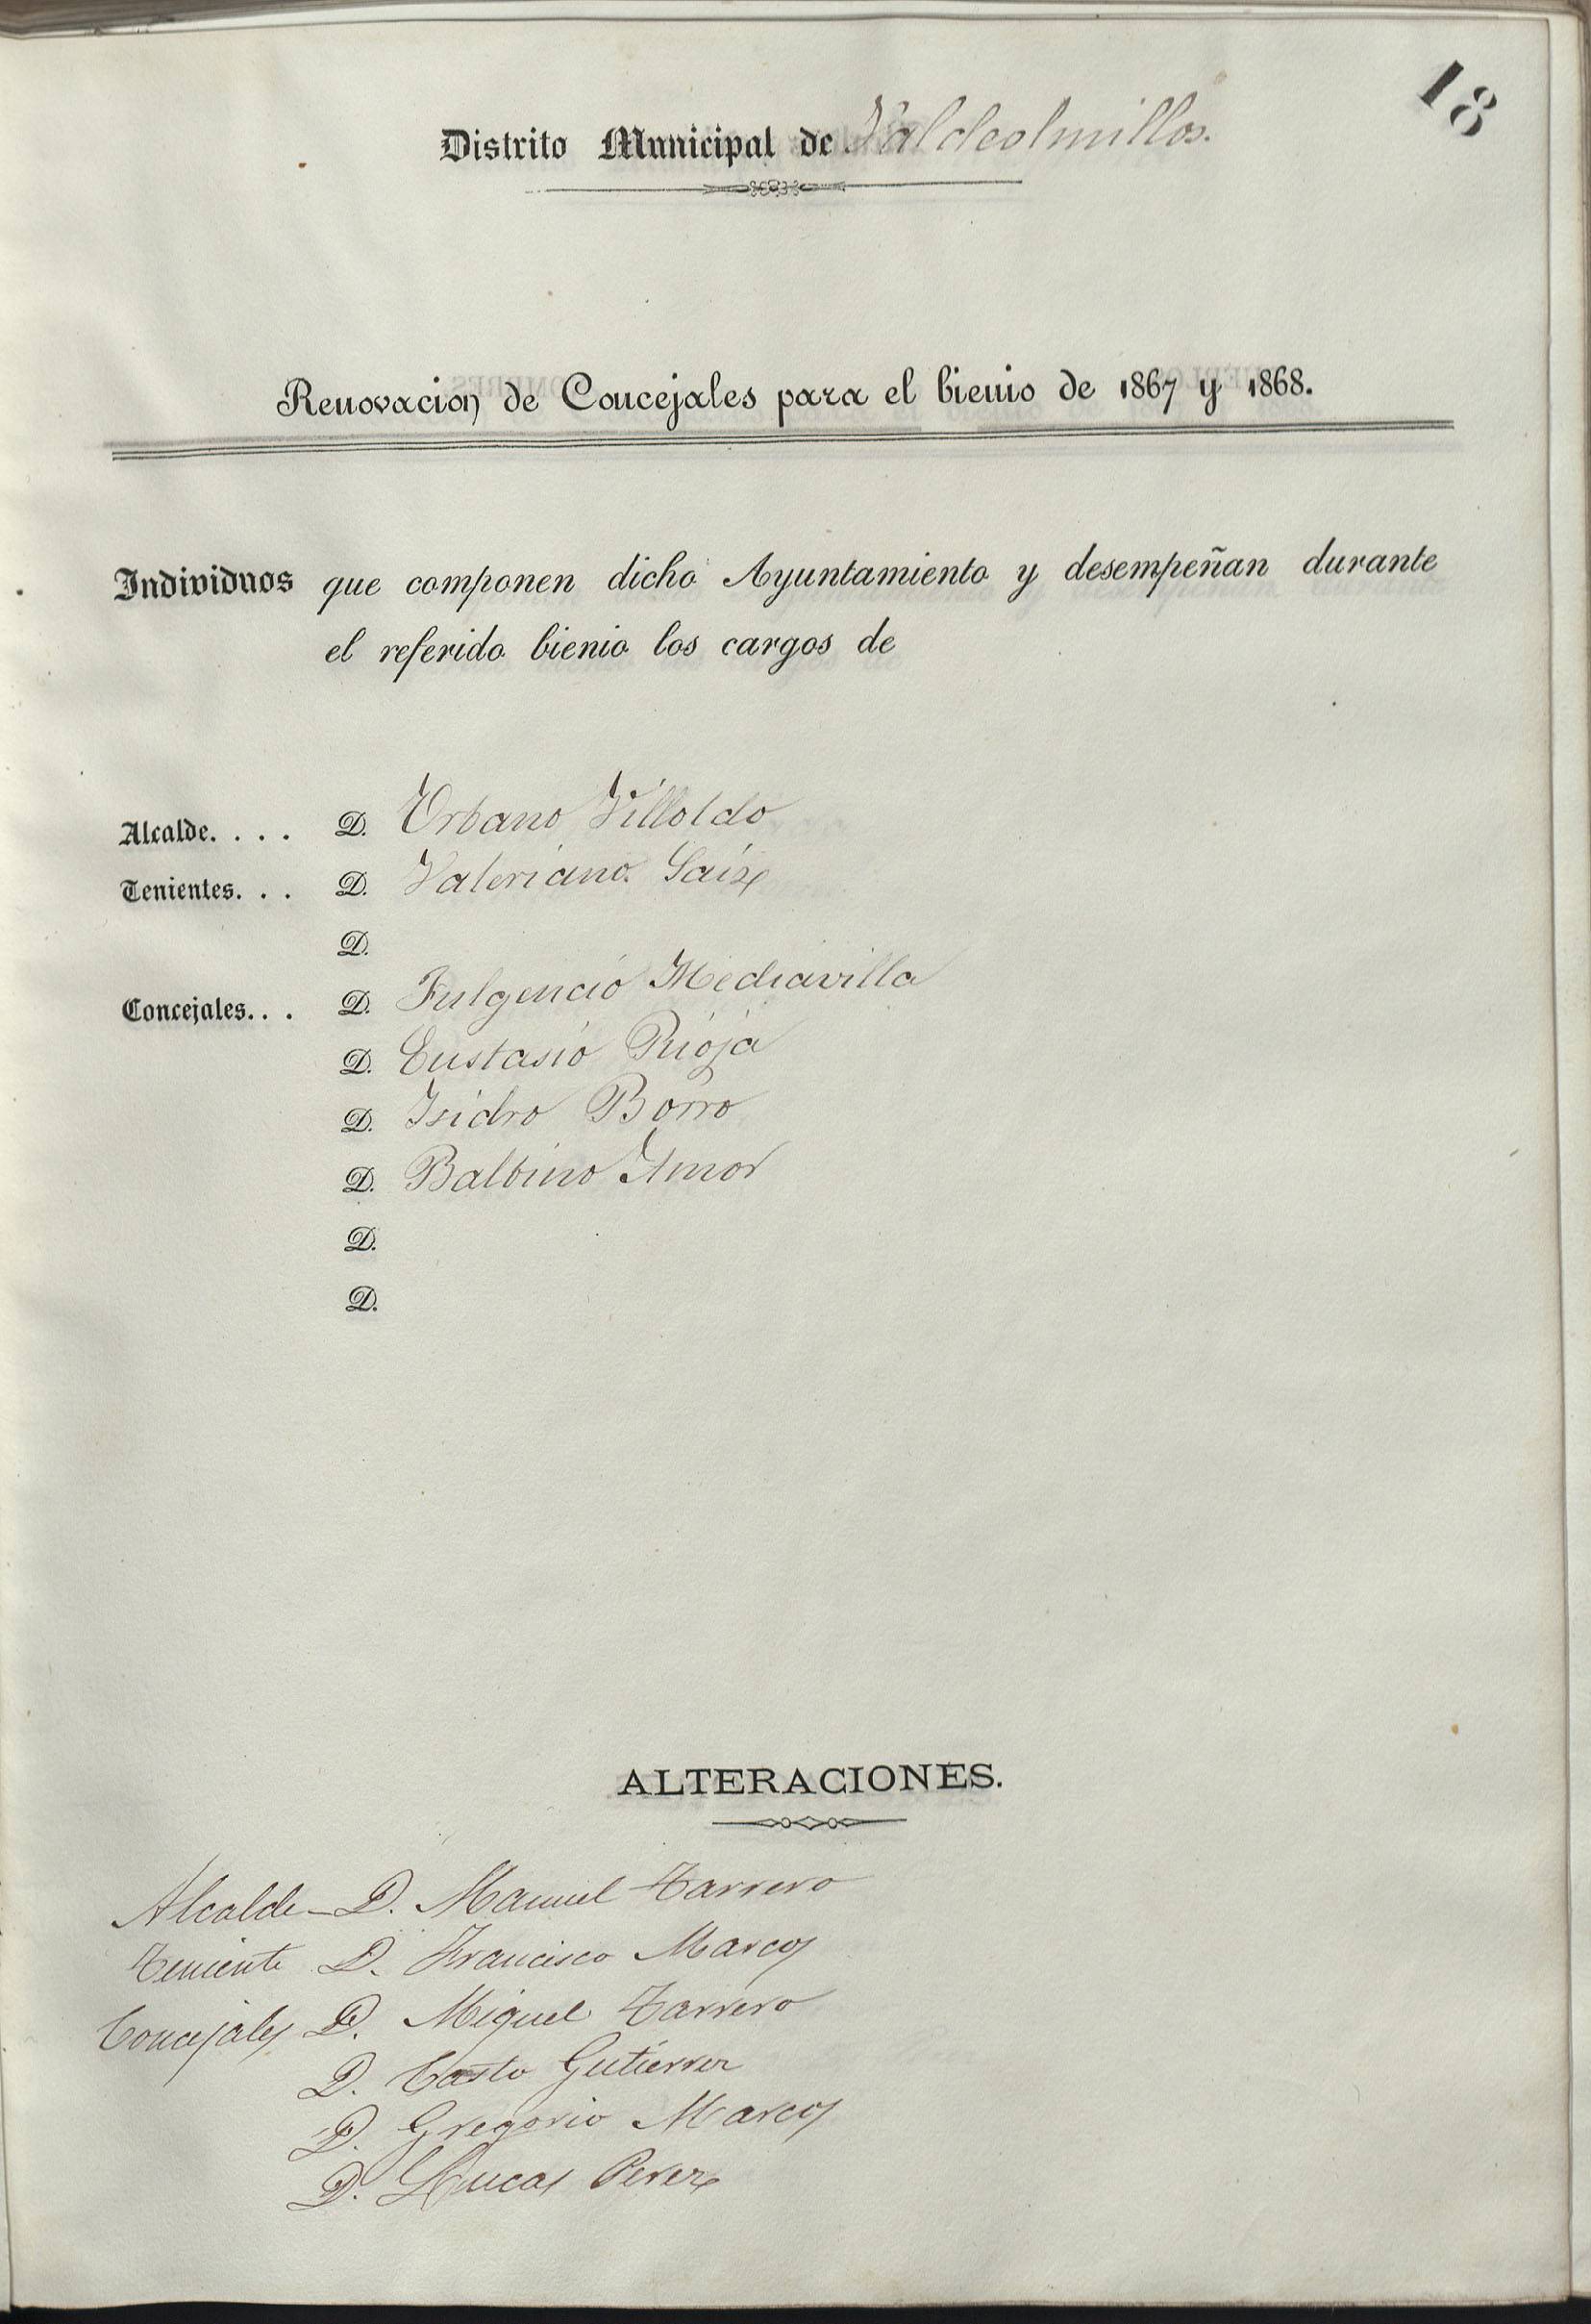 18
Distrito Municipal de Valdeolmillos.
Renovacion de Concejales para el bienio de 1867 y 1868.
Individuos que componen dicho Ayuntamiento y desempeñan durante
el referido bienio los cargos de
Alcalde. . . . D. Urbano Villoldo
Tenientes. . . D. Valeriano Saiz
D.
Concejales. . . D. Fulgencio Mediavilla
D. Eustasio Rioja
D. Isidro Borro
D. Balbino Amor
D.
D.
ALTERACIONES.
Alcalde - D. Manuel Tarrero
Teniente D. Francisco Marcos
Concejales D. Miguel Tarrero
D. Casto Gutierrez
D. Gregorio Marcos
D. Lucas Perez